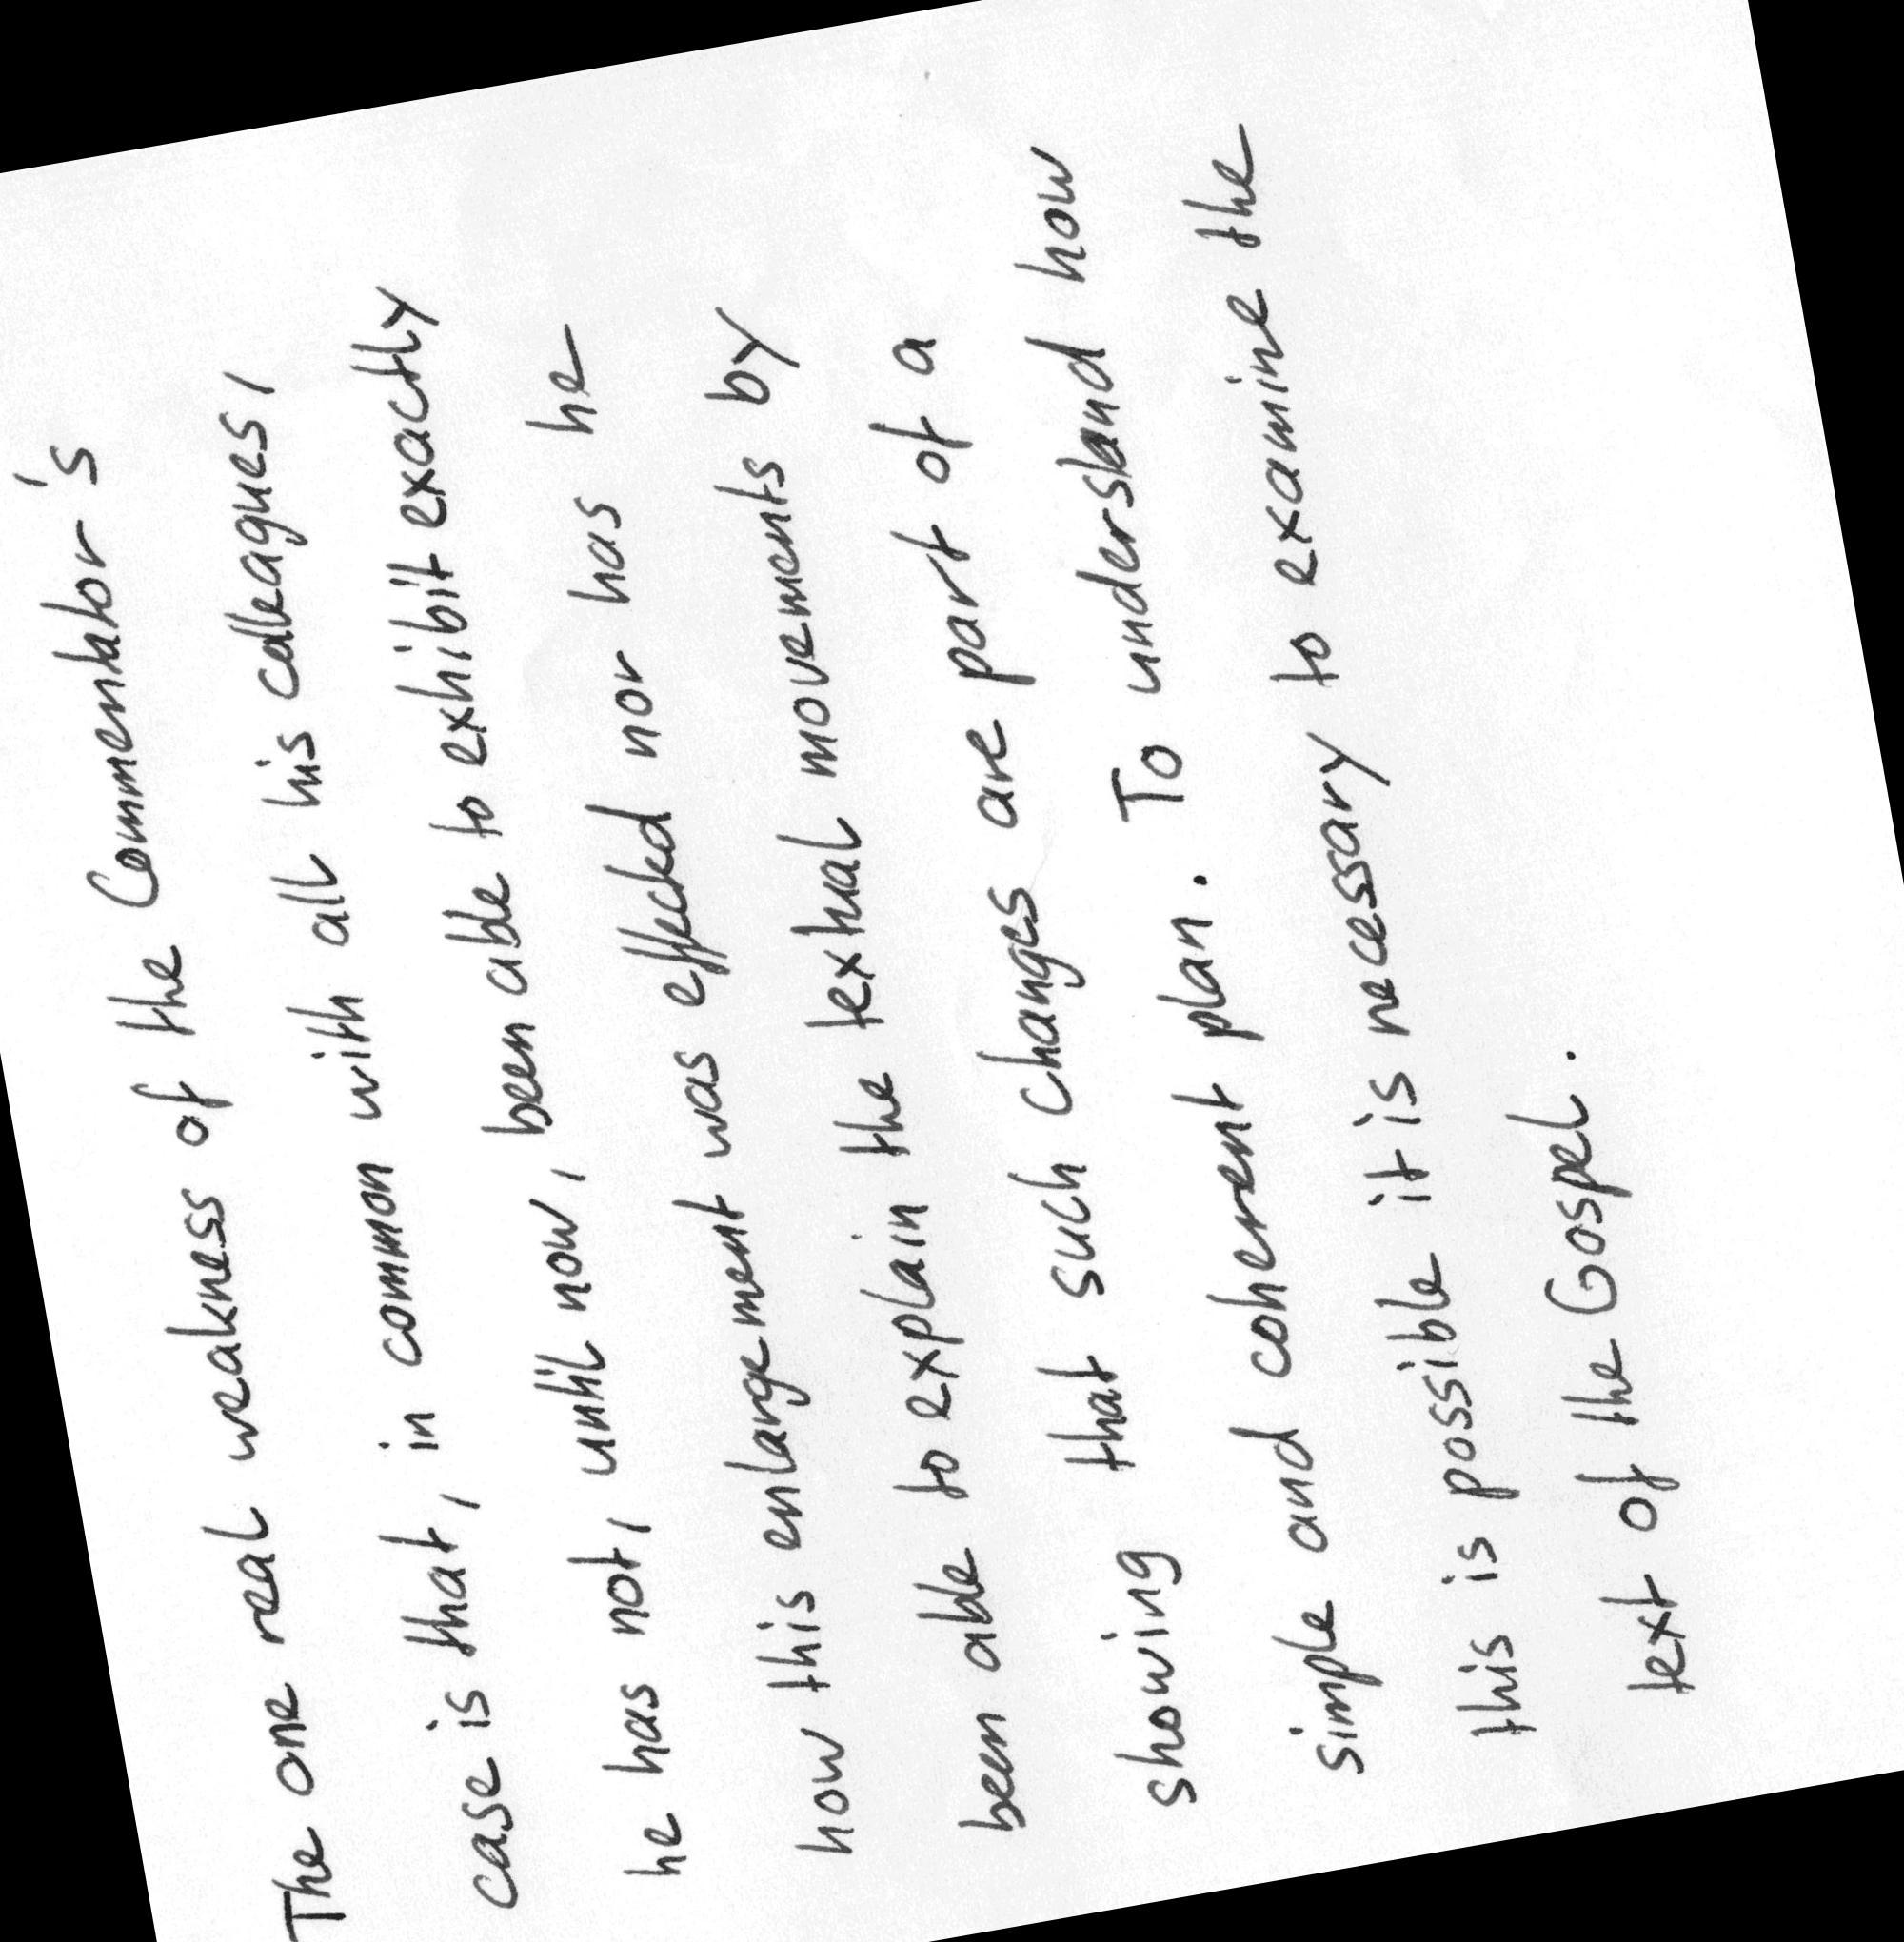 The one real weakness of the Commentator's
case is that, in common with all his colleagues,
he has not, until now, been able to exhibit exactly
how this enlargement was effected nor has he
been able to explain the textual movements by
showing that such changes are part of a
simple and coherent plan. To understand how
this is possible it is necessary to examine the
text of the Gospel.